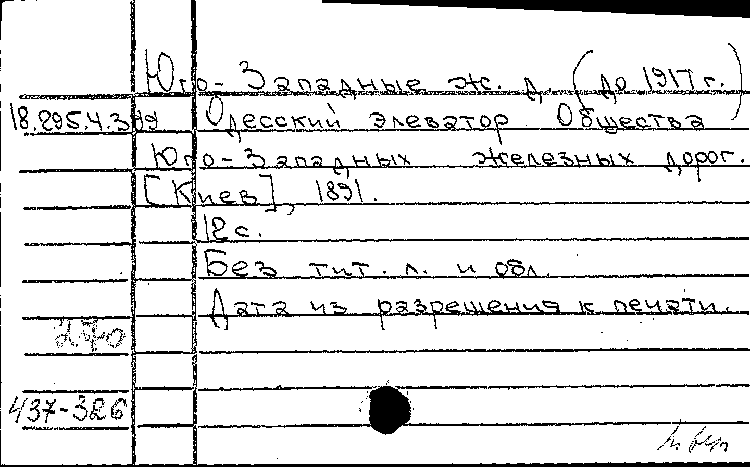 Юго-Западные ж. д. (до 1917 г.)
18.295.4.399 Одесский элеватор Общества
Юго-Западных железных дорог.
[Киев], 1891.
12 с.
Без тит. л. и обл.
Дата из разрешения к печати.
270
437-326